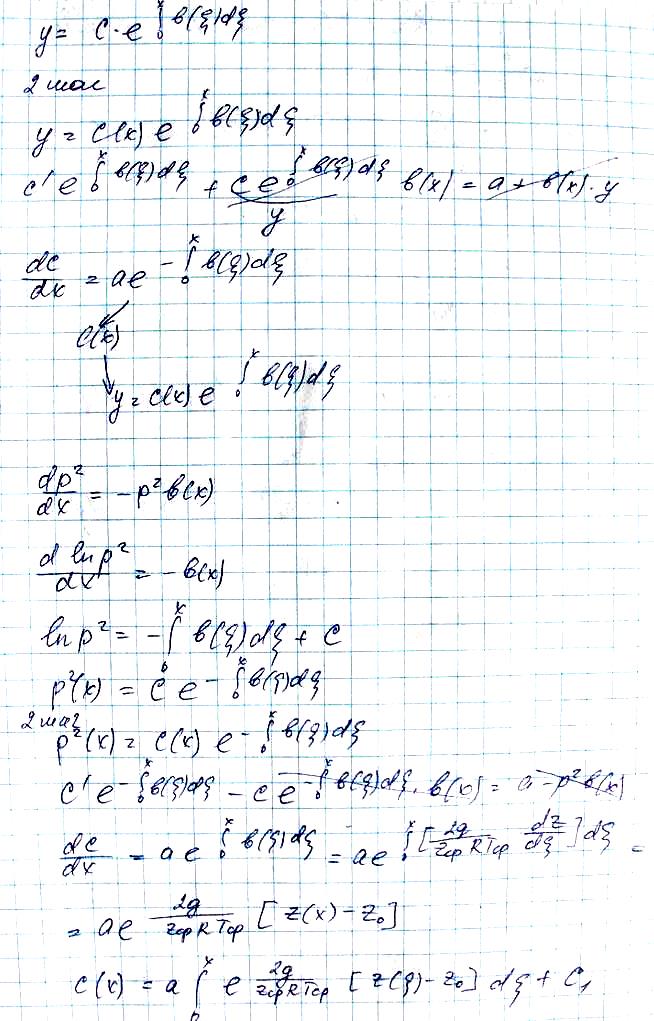 y = c·e^{∫_0^x b(ξ)dξ}
2 шаг
y = c(x) e^{∫_0^x b(ξ)dξ}
c' e^{∫_0^x b(ξ)dξ} + c e^{∫_0^x b(ξ)dξ} b(x) = a + b(x)·y
y
dc/dx = a e^{-∫_0^x b(ξ)dξ}
c(x)
y = c(x) e^{∫_0^x b(ξ)dξ}
dp²/dx = -p² b(x)
d ln p²/dx = -b(x)
ln p² = -∫_0^x b(ξ)dξ + c
p²(x) = c e^{-∫_0^x b(ξ)dξ}
2 шаг
p²(x) = c(x) e^{-∫_0^x b(ξ)dξ}
c' e^{-∫_0^x b(ξ)dξ} - c e^{-∫_0^x b(ξ)dξ}·b(x) = a - p² b(x)
dc/dx = a e^{∫_0^x b(ξ)dξ} = a e^{∫_0^x [2g/(Zср R Tср) dz/dξ] dξ} =
= a e^{2g/(Zср R Tср) [z(x) - z₀]}
c(x) = a ∫_0^x e^{2g/(Zср R Tср) [z(ξ) - z₀]} dξ + C₁